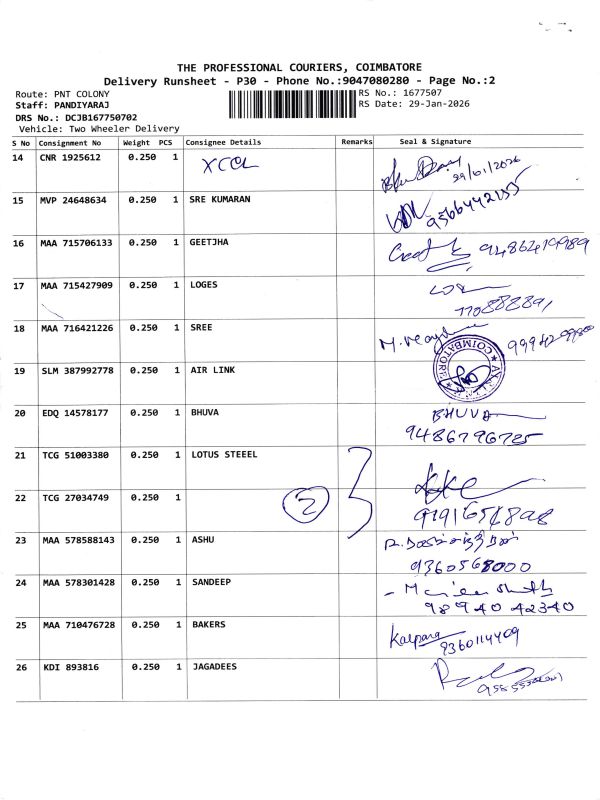 THE PROFESSIONAL COURIERS, COIMBATORE
Delivery Runsheet - P30 - Phone No.:9047080280 - Page No.:2
Route: PNT COLONY
RS No.: 1677507
Staff: PANDIYARAJ
RS Date: 29-Jan-2026
DRS No.: DCJB167750702
Vehicle: Two Wheeler Delivery
S No Consignment No Weight PCS Consignee Details Remarks Seal & Signature
14 CNR 1925612 0.250 1 XCCL 29/01/2026
15 MVP 24648634 0.250 1 SRE KUMARAN 9566442155
16 MAA 715706133 0.250 1 GEETJHA
17 MAA 715427909 0.250 1 LOGES
18 MAA 716421226 0.250 1 SREE
19 SLM 387992778 0.250 1 AIR LINK COIMBATORE
20 EDQ 14578177 0.250 1 BHUVA BHUVA
9486796725
21 TCG 51003380 0.250 1 LOTUS STEEEL
22 TCG 27034749 0.250 1 2
23 MAA 578588143 0.250 1 ASHU
9360568000
24 MAA 578301428 0.250 1 SANDEEP
98940 42340
25 MAA 710476728 0.250 1 BAKERS Kalpana
9360114409
26 KDI 893816 0.250 1 JAGADEES